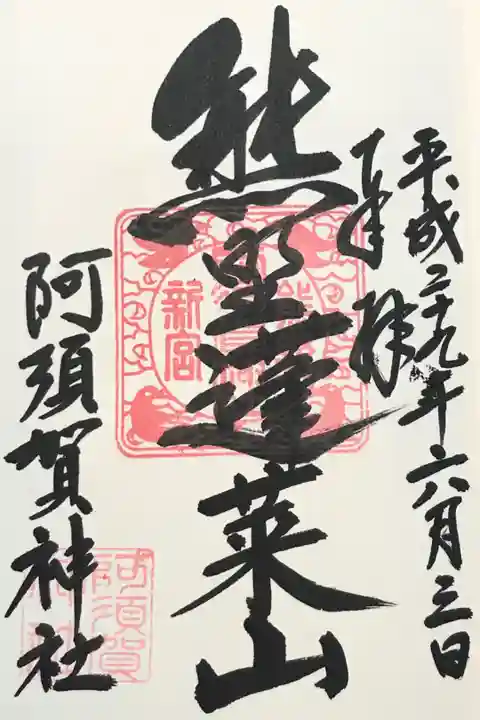 平成二十九年六月三日
奉拝
熊野蓬莱山
新宮
阿須賀神社
阿須賀